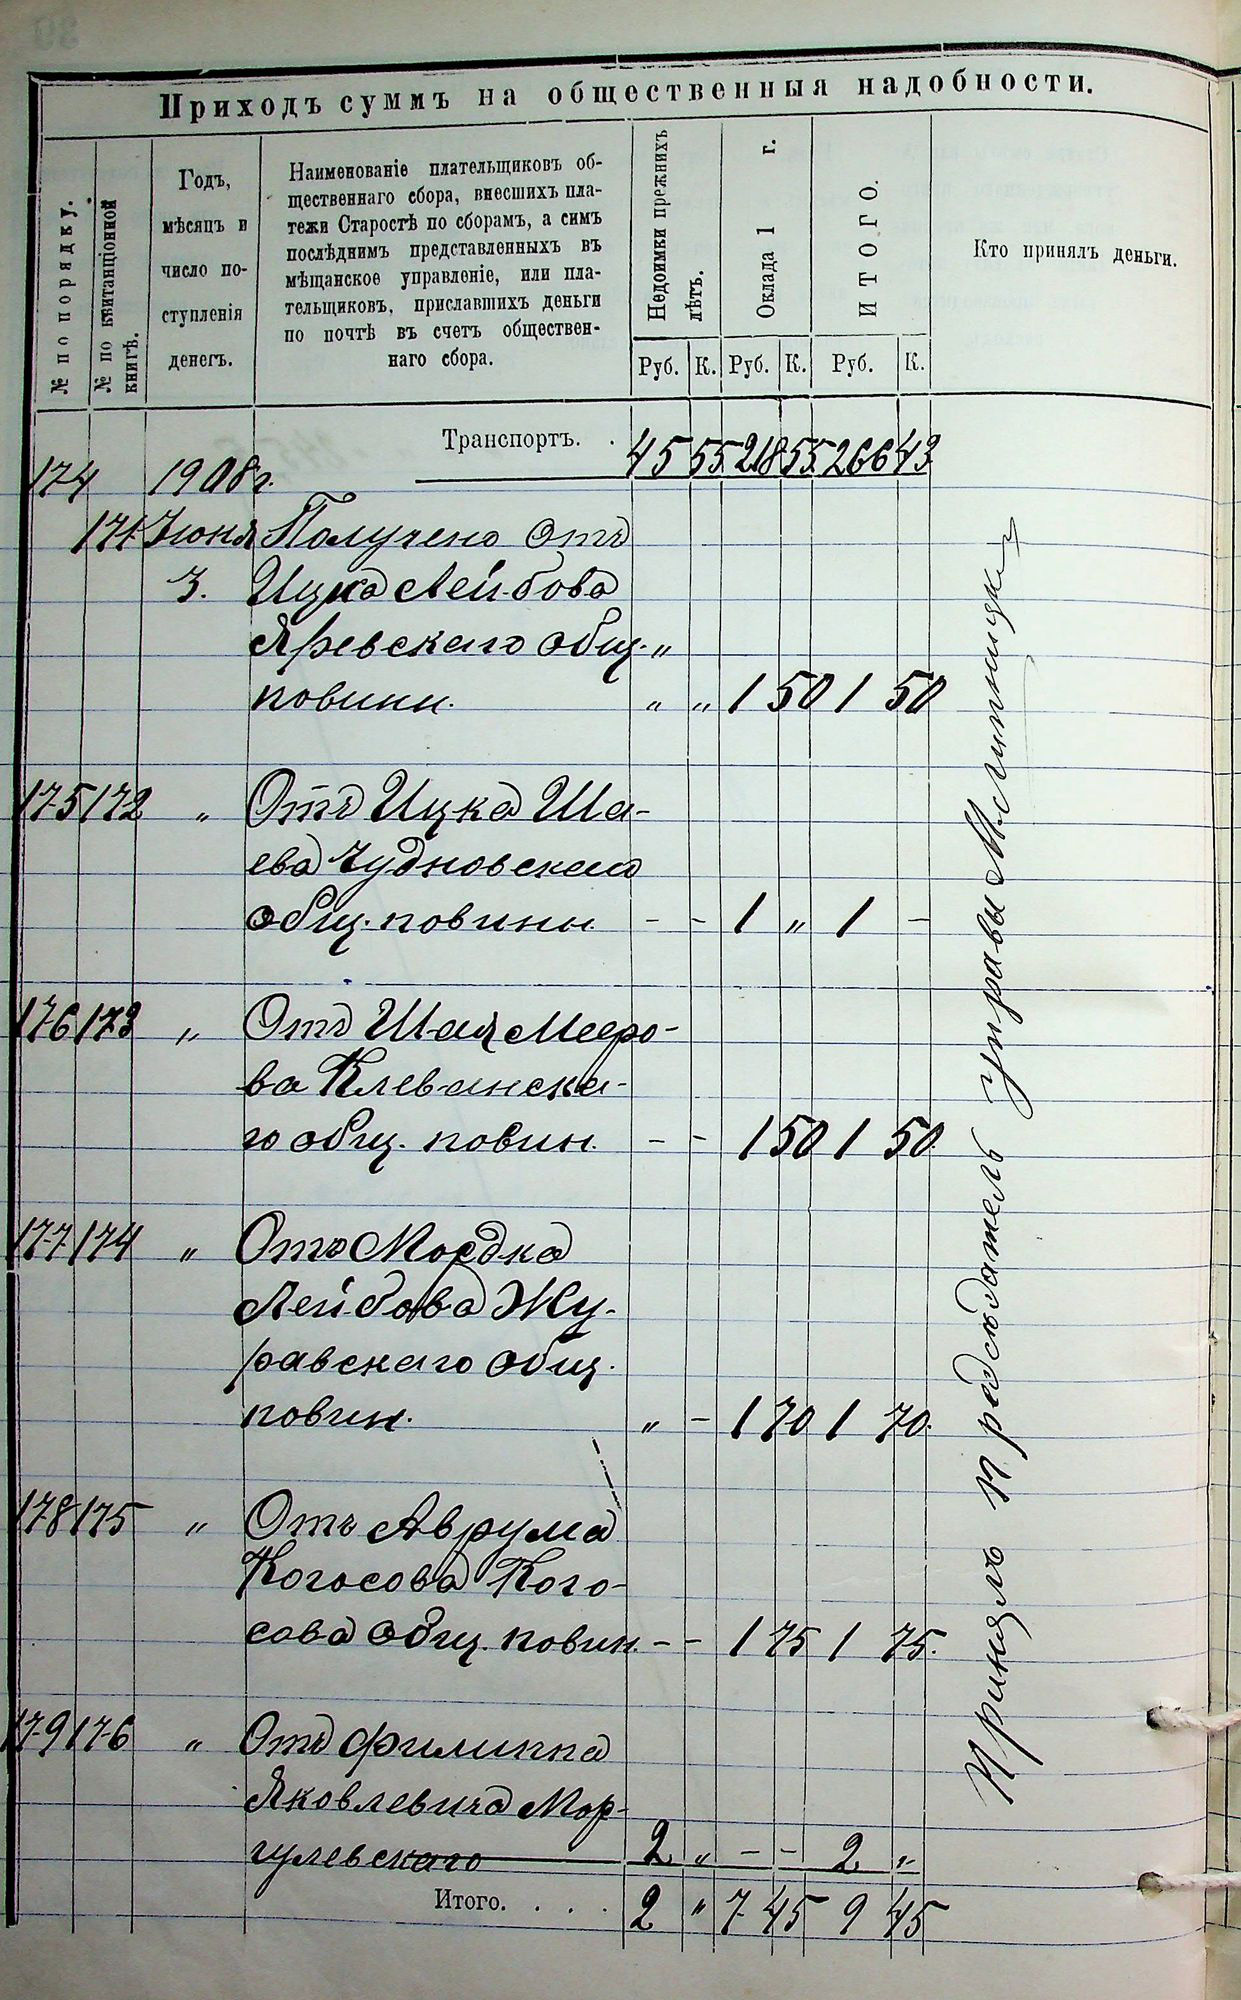 Приходъ суммъ на общественныя надобности.
№ по порядку.
№ по квитанціонной
книгѣ.
Годъ,
мѣсяцъ и
число по-
ступленія
денегъ.
Наименованіе плательщиковъ об-
щественнаго сбора, внесшихъ пла-
тежи Старостѣ по сборамъ, а симъ
послѣднимъ представленныхъ въ
мѣщанское управленіе, или пла-
тельщиковъ, приславшихъ деньги
по почтѣ въ счетъ обществен-
наго сбора.
Недоимки прежнихъ
лѣтъ.
Оклада 1 г.
ИТОГО.
Кто принялъ деньги.
Руб. К. Руб. К. Руб. К.
Транспортъ. . 45 55 218 55 266 43
174 1908 г.
171 Іюня Получено отъ
3. Ицка Лейбова
Яревскаго общ. „
повинн. „ „ 1 50 1 50
175 172 „ Отъ Ицка Ша-
ева Чудновскаго
общ. повинн. - - 1 „ 1 -
176 173 „ Отъ Шая Мееро-
ва Клеванска-
го общ. повин. - - 1 50 1 50
177 174 „ Отъ Мордка
Лейбова Жу-
равскаго общ.
повин. „ - 1 70 1 70.
178 175 „ Отъ Аврума
Когосова Кого-
сова общ. повин. - - 1 75 1 75.
179 176 „ Отъ Филиппа
Яковлевича Мор-
гулевскаго 2 „ - - 2 „
Итого. . . . 2 „ 7 45 9 45
Принялъ предсѣдатель управы